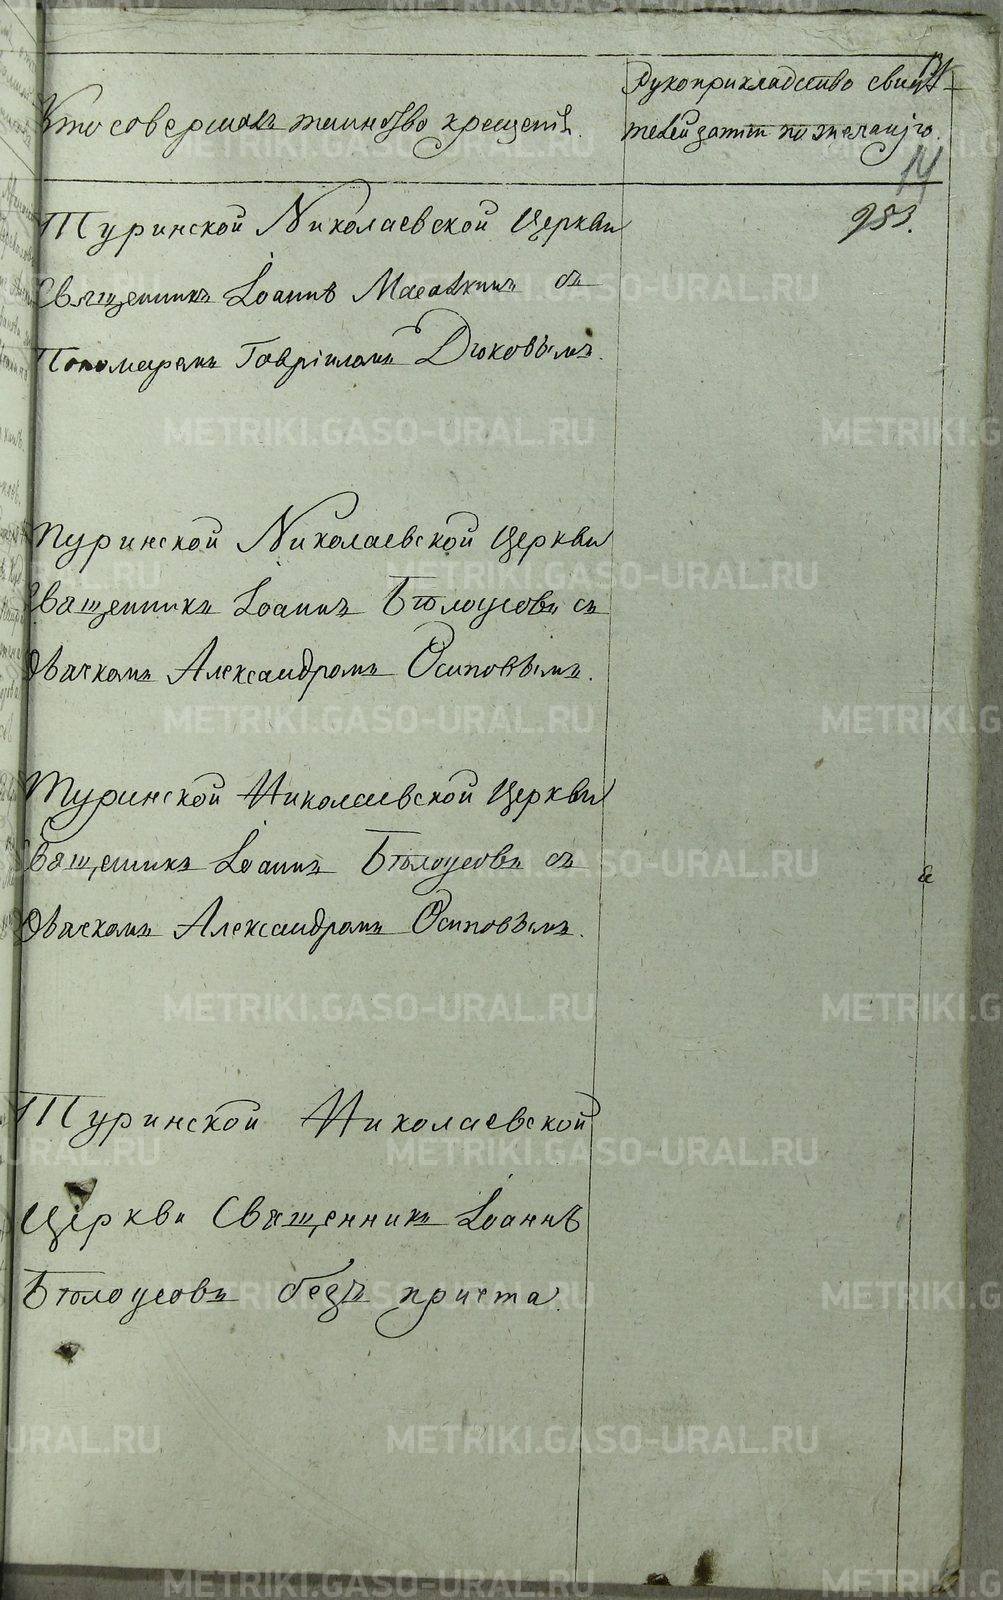 Кто совершалъ таинство крещенія.
Рукоприкладство свидѣ-
телей записи по желанію.
14
983.
Туринской Николаевской Церкви
Священникъ Іоаннъ съ
Пономаремъ Гавріиломъ Дюковымъ.
Туринской Николаевской Церкви
Священникъ Іоаннъ Бѣлоусовъ съ
Дьячкомъ Александромъ Осиповымъ.
Туринской Николаевской Церкви
Священникъ Іоаннъ Бѣлоусовъ съ
Дьячкомъ Александромъ Осиповымъ.
Туринской Николаевской
Церкви Священникъ Іоаннъ
Бѣлоусовъ безъ причта.
METRIKI.GASO-URAL.RU